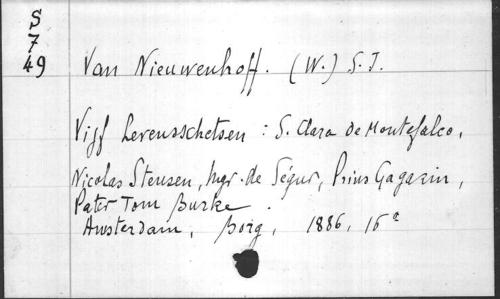 S
7
49
Van Nieuwenhoff. (W.) S.J.
Vijf Levensschetsen : S. Clara de Montefalco,
Nicolas Stensen, Mgr. de Ségur, Prins Gagarin,
Pater Tom Burke.
Amsterdam, Borg, 1886, 16°